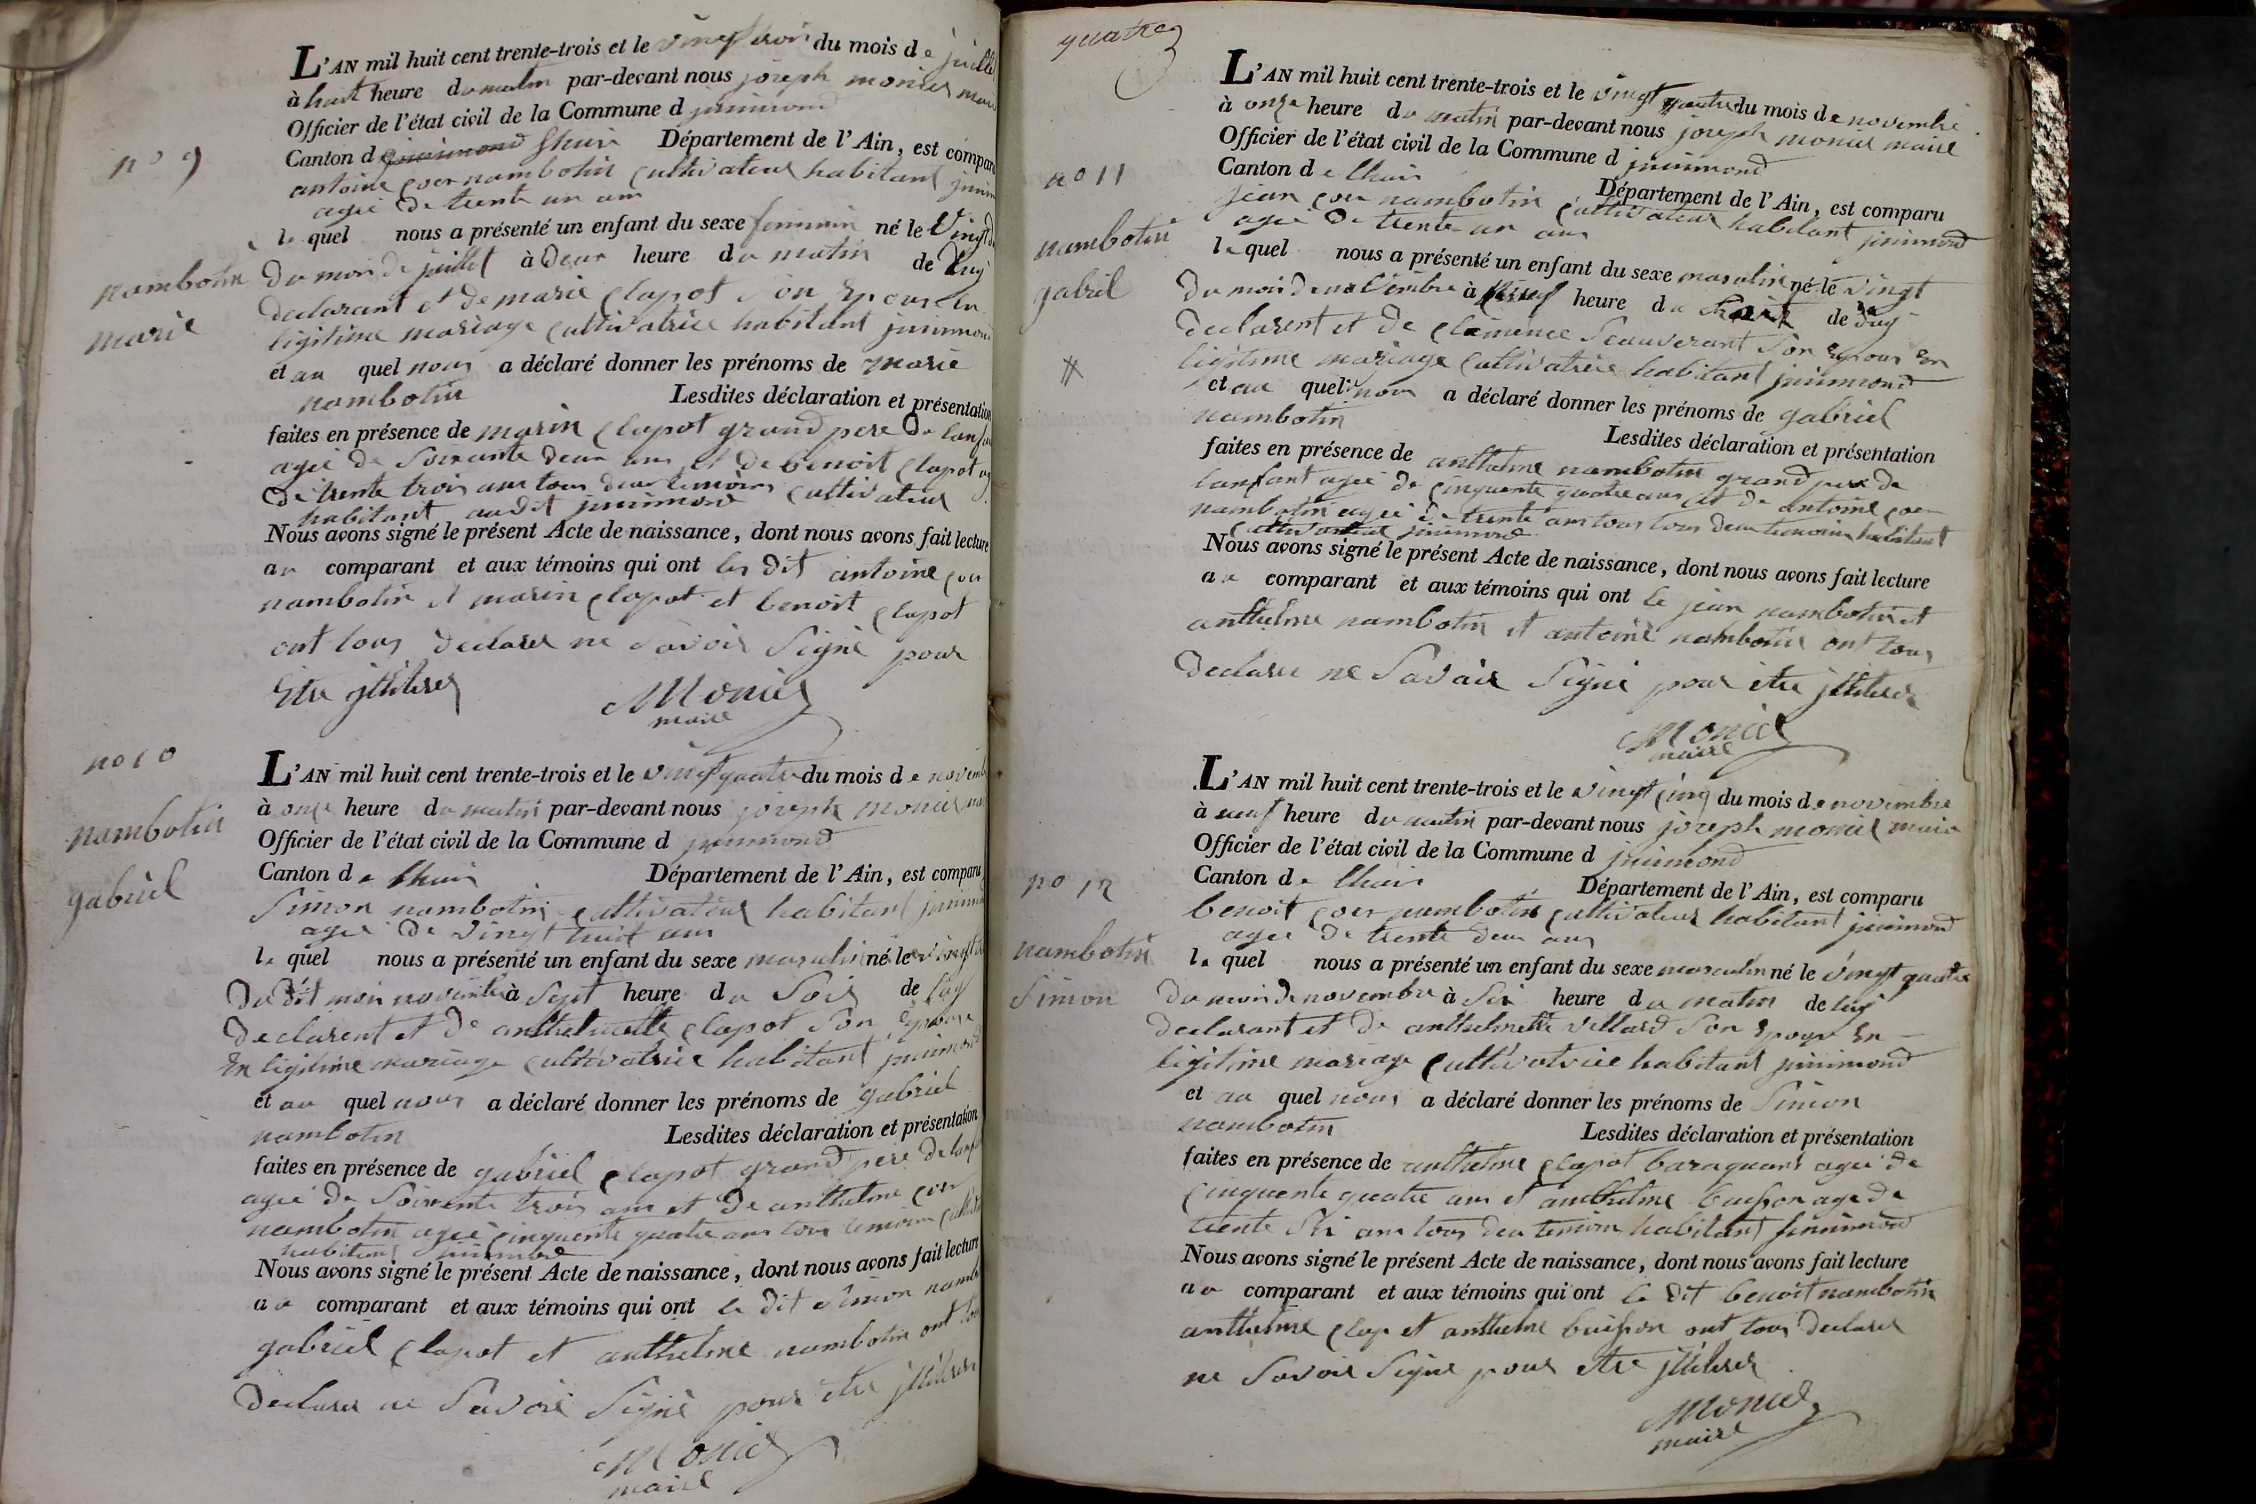 L'AN mil huit cent trente-trois et le vingt trois du mois de juillet
à huit heure du matin par-devant nous joseph monier maire
Officier de l'état civil de la Commune d jnnimond
Canton d jnnimond lhuis Département de l'Ain, est comparu
antoine coer nambotin cultivateur habitant
agée de trente un ans
n° 9
le quel nous a présenté un enfant du sexe feminin né le vingt
nambotin
marie
du mois de juillet à deux heure du matin de luy
declarant et de marie clapot son epouse en
legitime mariage cultivatrice habitant jnnimond
et au quel nous a déclaré donner les prénoms de marie
nambotin Lesdites déclaration et présentation
faites en présence de marin clapot grand pere de
agée de soixante deux ans et de benoit clapot
de trente trois ans tous deux temoins cultivateur
habitant audit jnnimond
Nous avons signé le présent Acte de naissance, dont nous avons fait lecture
au comparant et aux témoins qui ont les dit antoine coer
nambotin et marin clapot et benoit clapot
ont tous declarer ne savoir signé pour
etre jllitere
Monier
maire
n° 10
nambotin
gabriel
L'AN mil huit cent trente-trois et le vingt quatre du mois de novembre
à onze heure du matin par-devant nous joseph monier
Officier de l'état civil de la Commune d jnnimond
Canton de lhuis Département de l'Ain, est comparu
Simon nambotin cultivateur habitant
agée de vingt huit ans
le quel nous a présenté un enfant du sexe masculin né le vingt
du dit mois novembre à sept heure du soir de luy
declarent et de anthelmette clapot son epouse
en legitime mariage cultivatrice habitant jnnimond
et au quel nous a déclaré donner les prénoms de gabriel
nambotin Lesdites déclaration et présentation
faites en présence de gabriel clapot grand pere de
agée de soixente trois ans et de anthelme coer
nambotin agée cinquente quatre ans tous temoins
habitant
Nous avons signé le présent Acte de naissance, dont nous avons fait lecture
au comparant et aux témoins qui ont le dit simon
gabriel clapot et anthelme nambotin ont
declarer ne savoir signé pour etre
Monier
maire
quatre
L'AN mil huit cent trente-trois et le vingt quatre du mois de novembre
à onze heure du matin par-devant nous joseph monier maire
Officier de l'état civil de la Commune d jnnimond
Canton de lhuis Département de l'Ain, est comparu
n° 11
nambotin
gabriel
jean coer nambotin cultivateur habitant jnnimond
agée de trente un ans
le quel nous a présenté un enfant du sexe masculin né le vingt
du mois de novembre à heure du de luy
declarent et de clemence son epouse en
legitime mariage cultivatrice habitant jnnimond
et au quel nous a déclaré donner les prénoms de gabriel
nambotin Lesdites déclaration et présentation
faites en présence de anthelme nambotin grand pere de
lanfant agée de cinquente quatre ans et de antoine coer
nambotin agée de trente ans tous deux temoins habitant
cultivateur jnnimond
Nous avons signé le présent Acte de naissance, dont nous avons fait lecture
au comparant et aux témoins qui ont le jean nambotin et
anthelme nambotin et antoine nambotin ont tous
declarer ne savoir signé pour etre jllitere
Monier
maire
L'AN mil huit cent trente-trois et le vingt cinq du mois de novembre
à neuf heure du matin par-devant nous joseph monier maire
Officier de l'état civil de la Commune d jnnimond
Canton de lhuis Département de l'Ain, est comparu
n° 12
nambotin
Simon
benoit coer nambotin cultivateur habitant jnnimond
agée de trente deux ans
le quel nous a présenté un enfant du sexe masculin né le vingt quatre
du mois de novembre à six heure du matin de luy
declarant et de anthelmette villard son epouse en
legitime mariage cultivatrice habitant jnnimond
et au quel nous a déclaré donner les prénoms de Simon
nambotin Lesdites déclaration et présentation
faites en présence de anthelme clapot agée de
cinquente quatre ans et anthelme buisson age de
trente six ans tous deu temoins habitant jnnimond
Nous avons signé le présent Acte de naissance, dont nous avons fait lecture
au comparant et aux témoins qui ont le dit benoit nambotin
anthelme clap et anthelme buisson ont tous declarer
ne savoir signé pour etre jllitere
Monier
maire